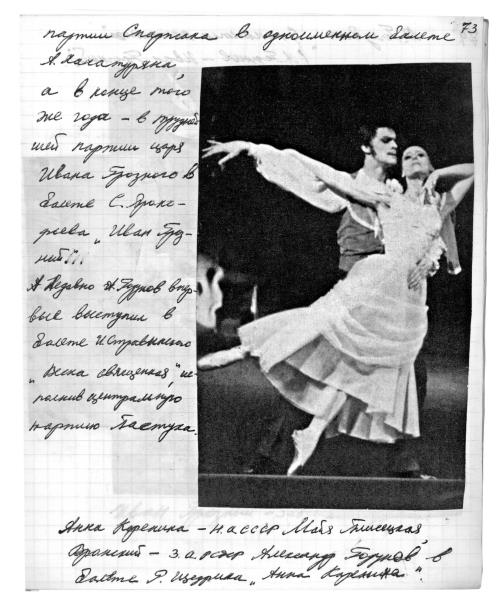 73
партии Спартака в одноименном балете
А.Хачатуряна,
а в конце того
же года – в трудней
шей партии царя
Ивана Грозного в
балете С. Проко-
фьева „Иван Гроз-
ный".
А недавно А.Годунов впер
вые выступил в
балете И.Стравинского
„Весна священная", ис-
полнив центральную
партию Пастуха.
Анна Каренина – н.а СССР Майя Плисецкая,
Вронский – з.а РСФСР Александр Годунов, в
балете Р. Щедрина „Анна Каренина".